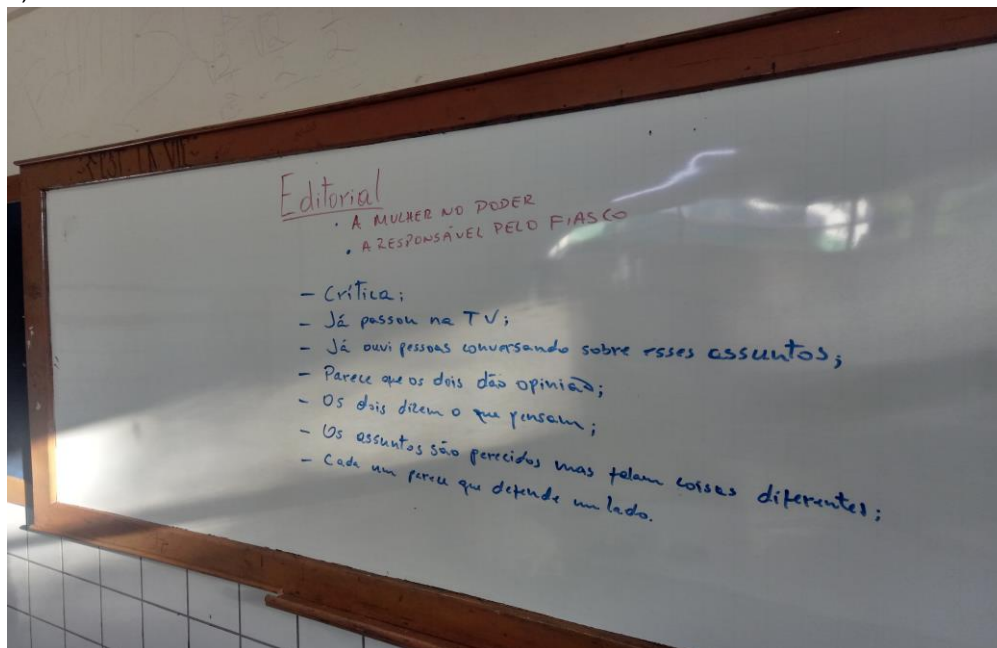 Editorial
• A MULHER NO PODER
• A RESPONSÁVEL PELO FIASCO
- Crítica;
- Já passou na TV;
- Já ouvi pessoas conversando sobre esses assuntos;
- Parece que os dois dão opinião;
- Os dois dizem o que pensam;
- Os assuntos são parecidos mas falam coisas diferentes;
- Cada um parece que defende um lado.